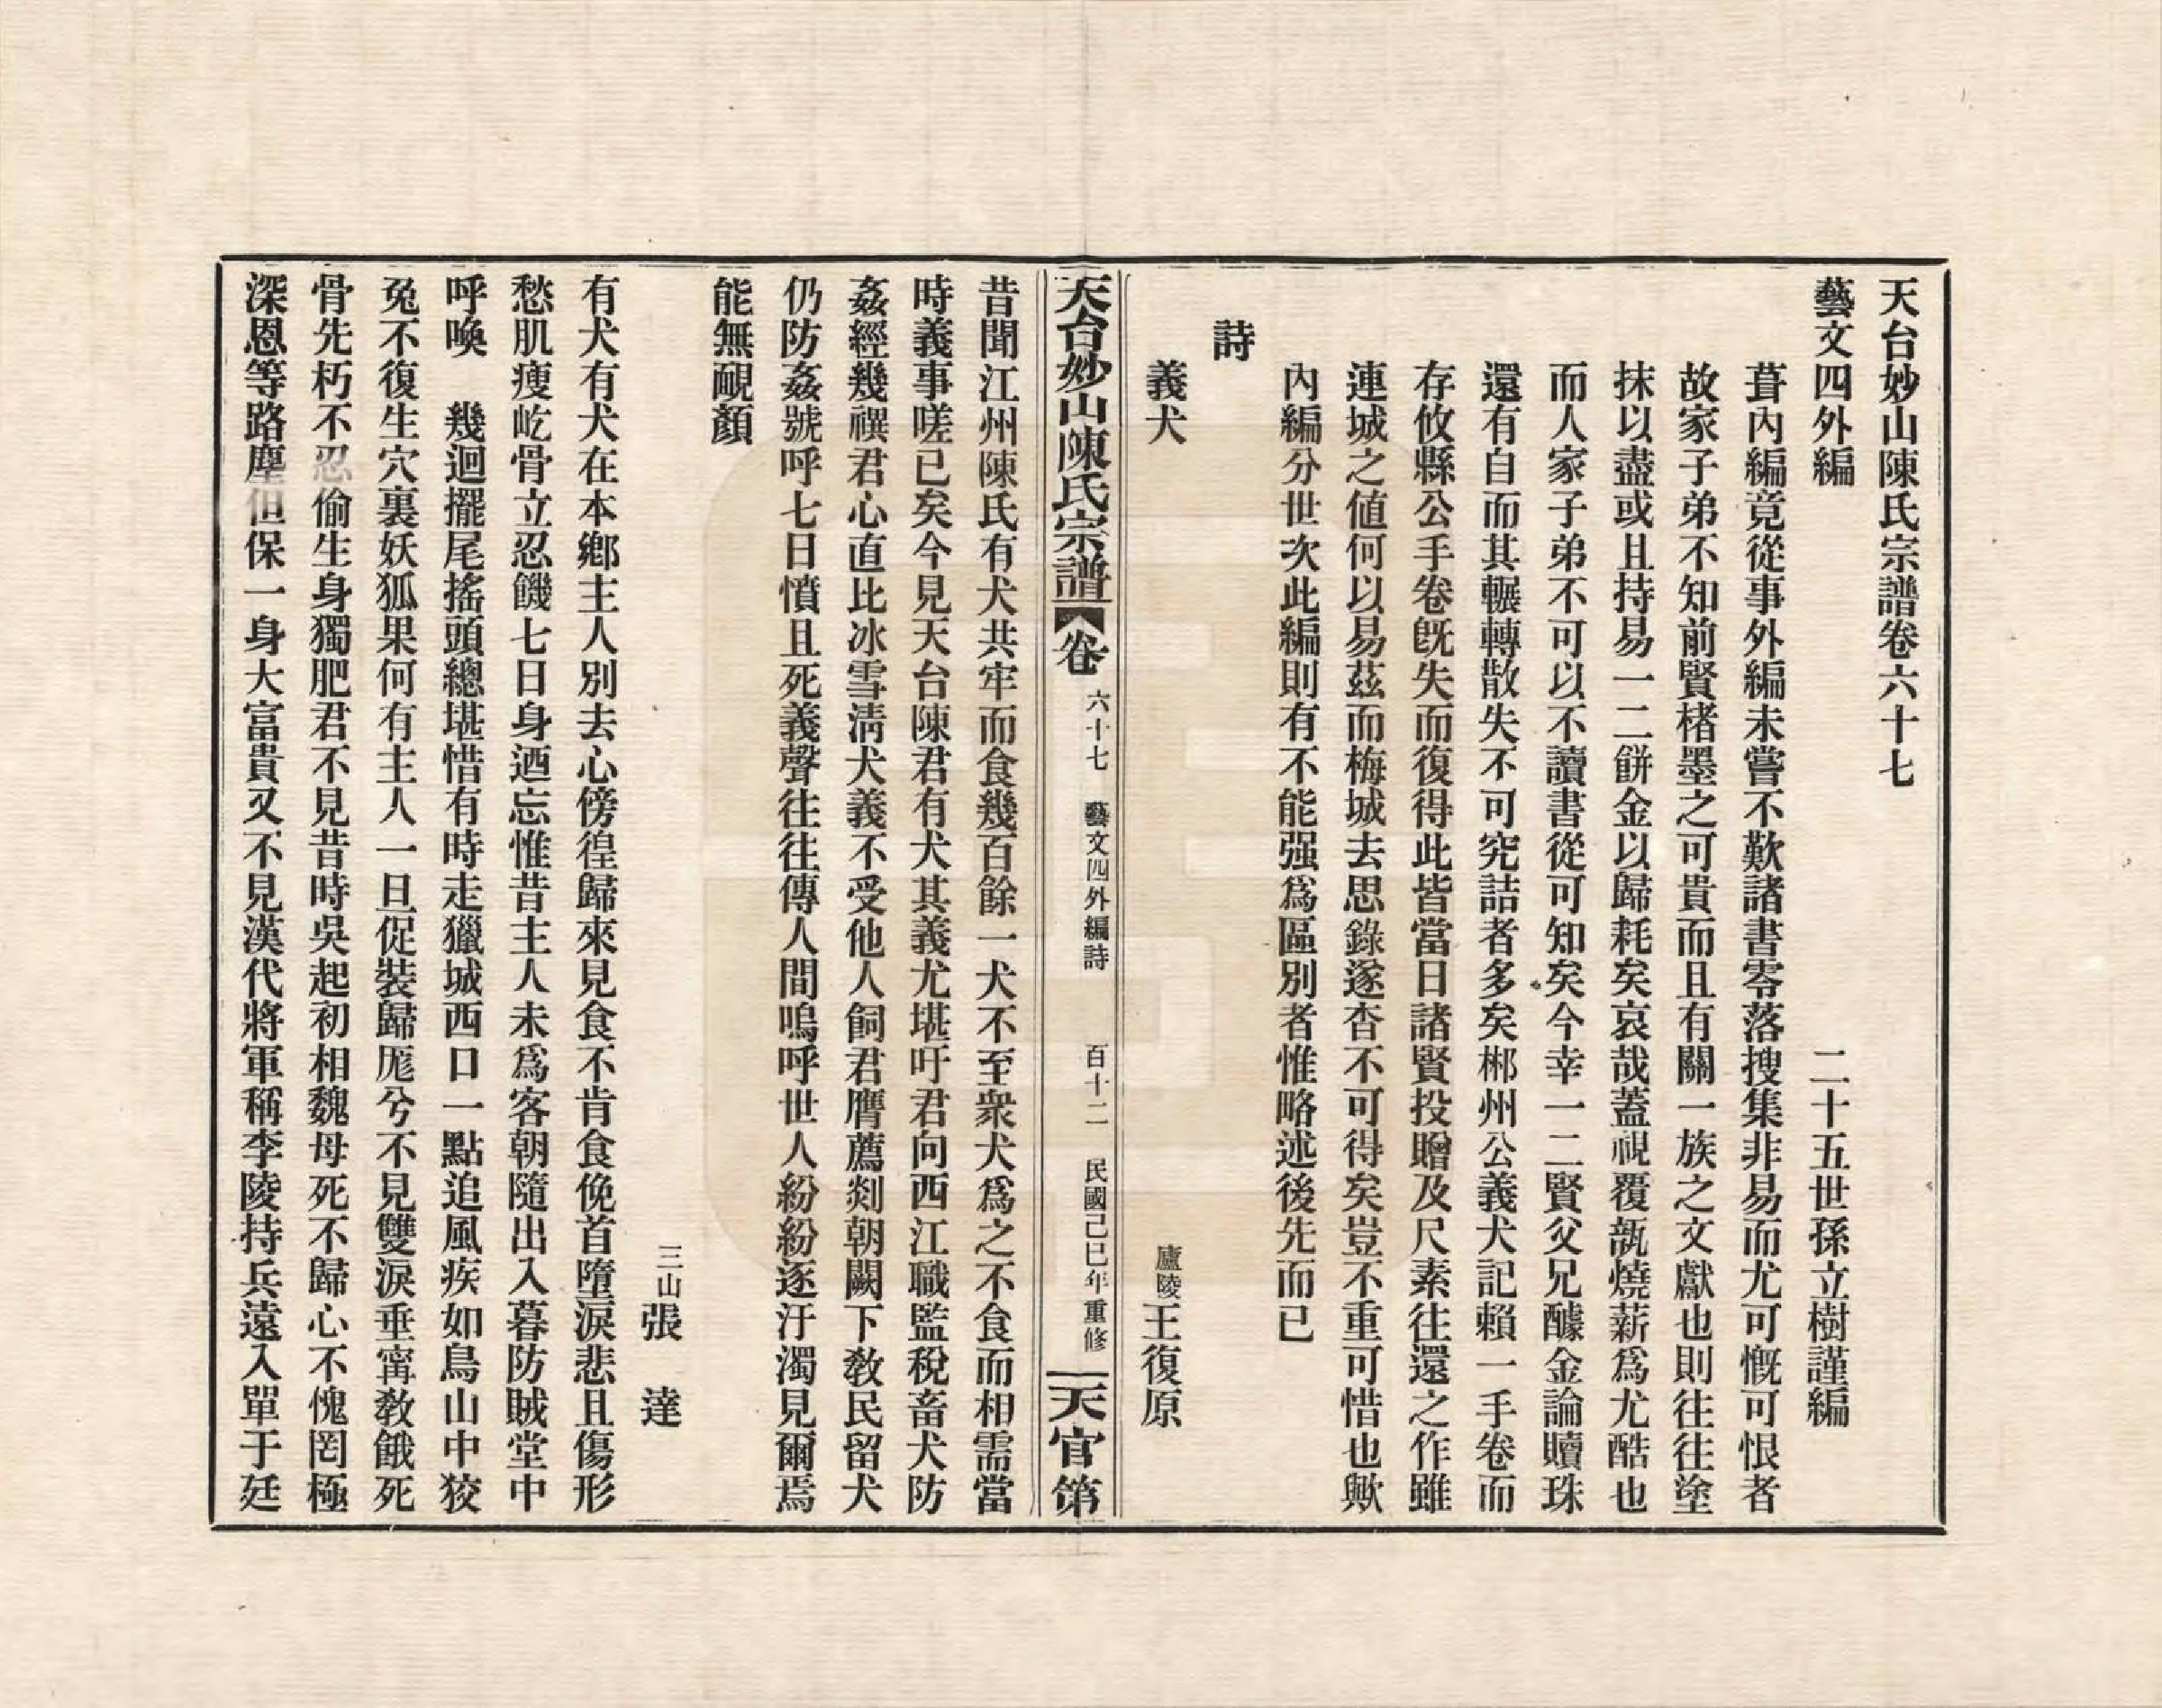 天台妙山陳氏宗譜卷六十七
藝文四外編　二十五世孫立樹謹編
葺內編竟從事外編未嘗不歎諸書零落搜集非易而尤可慨可恨者
故家子弟不知前賢楮墨之可貴而且有關一族之文獻也則往往塗
抹以盡或且持易一二餅金以歸耗矣哀哉蓋視覆瓿燒薪爲尤酷也
而人家子弟不可以不讀書從可知矣今幸一二賢父兄醵金論贖珠
還有自而其輾轉散失不可究詰者多矣郴州公義犬記賴一手卷而
存攸縣公手卷旣失而復得此皆當日諸賢投贈及尺素往還之作雖
連城之值何以易茲而梅城去思錄遂杳不可得矣豈不重可惜也歟
內編分世次此編則有不能强爲區別者惟略述後先而已
詩
義犬　廬陵王復原
天台妙山陳氏宗譜　卷六十七　藝文四外編詩　百十二　民國己巳年重修　天官第
昔聞江州陳氏有犬共牢而食幾百餘一犬不至衆犬爲之不食而相需當
時義事嗟已矣今見天台陳君有犬其義尤堪吁君向西江職監稅畜犬防
姦經幾禩君心直比冰雪淸犬義不受他人飼君膺薦剡朝闕下敎民留犬
仍防姦號呼七日憤且死義聲往往傳人間嗚呼世人紛紛逐汙濁見爾焉
能無覥顏
三山張　達
有犬有犬在本鄉主人別去心傍徨歸來見食不肯食俛首墮淚悲且傷形
愁肌瘦屹骨立忍饑七日身迺忘惟昔主人未爲客朝隨出入暮防賊堂中
呼喚　幾迴擺尾搖頭總堪惜有時走獵城西口一點追風疾如鳥山中狡
兔不復生穴裏妖狐果何有主人一旦促裝歸厖兮不見雙淚垂寗敎餓死
骨先朽不忍偷生身獨肥君不見昔時吳起初相魏母死不歸心不愧罔極
深恩等路塵但保一身大富貴又不見漢代將軍稱李陵持兵遠入單于廷